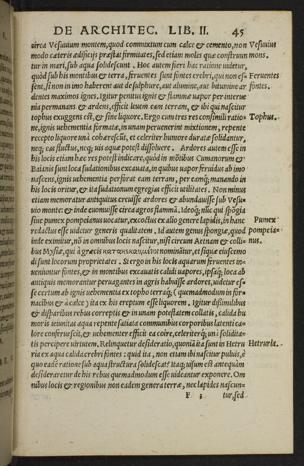 DE ARCHITEC. LIB. II. 45
circa Vesuvium montem, quod commixtum cum calce & cemento, non Vesuvius
modo cæteris ædificijs præstat firmitates, sed etiam moles quæ construun mons.
tur in mari, sub aqua solidescunt. Hoc autem fieri hac ratione uidetur,
quòd sub his montibus & terra, feruentes sunt fontes crebri, qui non es- Feruentes
sent, si non in imo haberent aut de sulphure, aut alumine, aut bitumine ar fontes.
dentes maximos ignes. Igitur penitus ignis & flammæ uapor per interue
nia permanans & ardens, efficit leuem eam terram, & ibi qui nascitur
tophus exuggens est, & sine liquore. Ergo cum tres res consimili ratio- Tophus.
ne, ignis uehementia formatæ, in unam peruenerint mixtionem, repente
recepto liquore unà cohærescunt, & celeriter humore duratæ solidantur,
neq; eas fluctus, neq; uis aquæ potest dissoluere. Ardores autem esse in
his locis etiam hæc res potest indicare, quòd in montibus Cumanorum &
Baianis sunt loca sudationibus excauata, in quibus uapor feruidus ab imo
nascens, ignis uehementia perforat eam terram, per eamq; manando in
his locis oritur, & ita sudationum egregias efficit utilitates. Non minus
etiam memoratur antiquitus creuisse ardores & abundauisse sub Vesu-
uio monte: & inde euomuisse circa agros flammã. Ideoq; nũc qui spõgia
siue pumex pompeianus uocatur, excoctus ex alio genere lapidis, in hanc Pumex
redactus esse uidetur generis qualitatem. Id autem genus spongiæ, quod pompeia-
inde eximitur, nõ in omnibus locis nascitur, nisi circum Aetnam et colli- nus.
bus Mysiæ, qui à græcis κατακεκαυμένοι nominãtur, et siquæ eiusce mo
di sunt locorum proprietates. Si ergo in his locis aquarum feruentes in-
ueniuntur fontes, & in montibus excauatis calidi uapores, ipsaq; loca ab
antiquis memorantur peruagantes in agris habuisse ardores, uidetur es-
se certum ab ignis uehementia ex topho terraq; (quemadmodum in for-
nacibus & à calce) ita ex his ereptum esse liquorem. Igitur dißimilibus
& disparibus rebus correptis & in unam potestatem collatis, calida hu
moris ieiunitas aqua repente satiata communibus corporibus latenti ca-
lore conferuescit, & uehementer efficit ea coire, celeriterq; unà solidita-
tis percipere uirtutem. Relinquetur desideratio, quoniã ita sunt in Hetru Hetruria.
ria ex aqua calida crebri fontes: quid ita, non etiam ibi nascitur puluis, è
quo eadem ratione sub aqua structura solidescat? Itaq; uisum est antequàm
desideraretur de his rebus quemadmodum esse uideantur exponere. Om
nibus locis & regionibus non eadem genera terræ, nec lapides nascun-
F 3 tur, sed